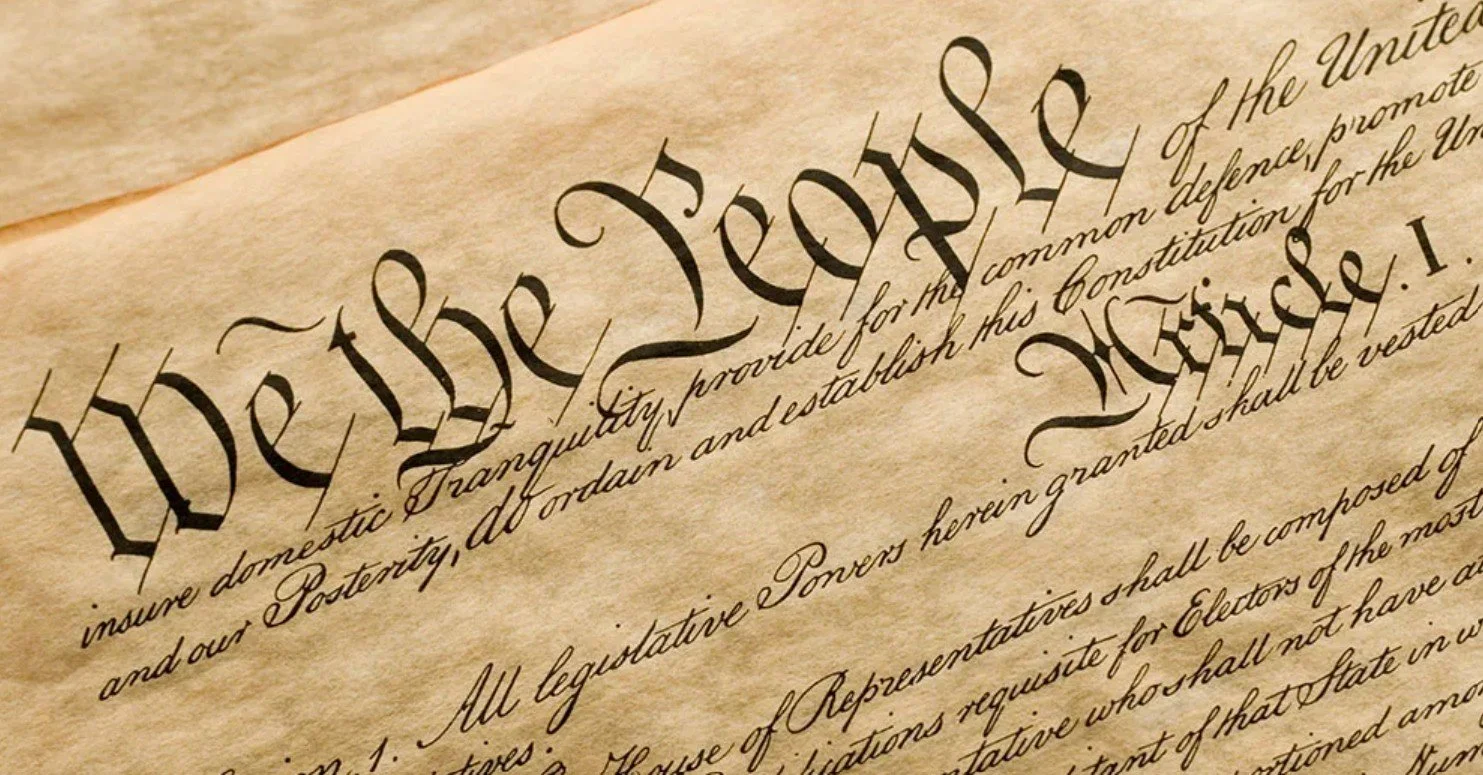 We the People of the United
insure domestic Tranquility, provide for the common defence, promote
and our Posterity, do ordain and establish this Constitution for the Un
Article. I.
ion. 1. All legislative Powers herein granted shall be vested
tives.
House of Representatives shall be composed of
ications requisite for Electors of the most
ntative who shall not have a
tant of that State in w
rtioned amo
Num